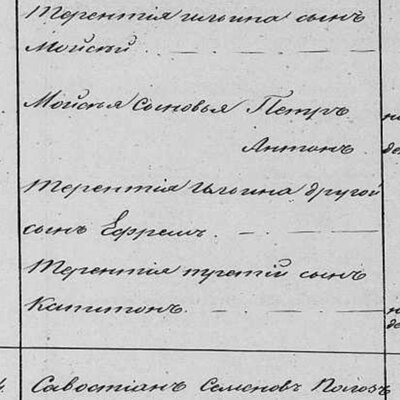 Терентія Ильина сынъ
Мойсѣй
Мойсѣя сыновья Петръ
Антонъ
Терентія Ильина другой
сынъ Ефремъ
Терентія третій сынъ
Капитонъ
Савостіанъ Семеновъ